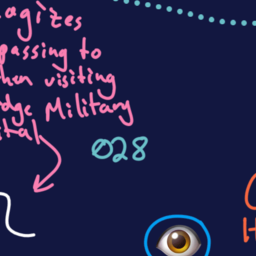 ogizes
passing to
hen visiting
dge Military
ital
028
H